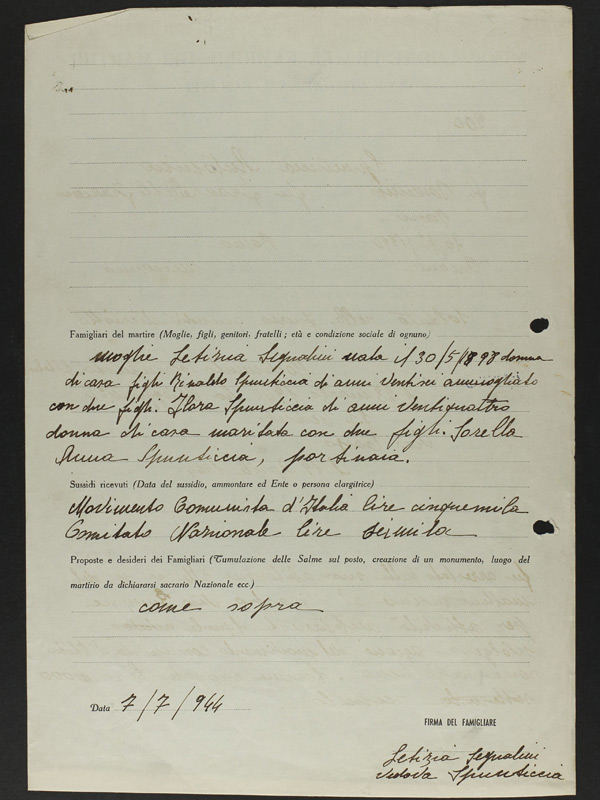 Famigliari del martire (Moglie, figli, genitori, fratelli ; età e condizione sociale di ognuno)
moglie Letizia Segnalini nata il 30/5/1898 donna
di casa figli Rinaldo Spunticcia di anni ventisei ammogliato
con due figli. Flora Spunticcia di anni ventiquattro
donna di casa maritata con due figli. Sorella
Anna Spunticcia, portinaia.
Sussidi ricevuti (Data del sussidio, ammontare ed Ente o persona elargitrice)
Movimento Comunista d'Italia lire cinquemila
Comitato Nazionale lire seimila
Proposte e desideri dei Famigliari (Tumulazione delle Salme sul posto, creazione di un monumento, luogo del
martirio da dichiararsi sacrario Nazionale ecc.)
come sopra
Data 7/7/944
FIRMA DEL FAMIGLIARE
Letizia Segnalini
Vedova Spunticcia